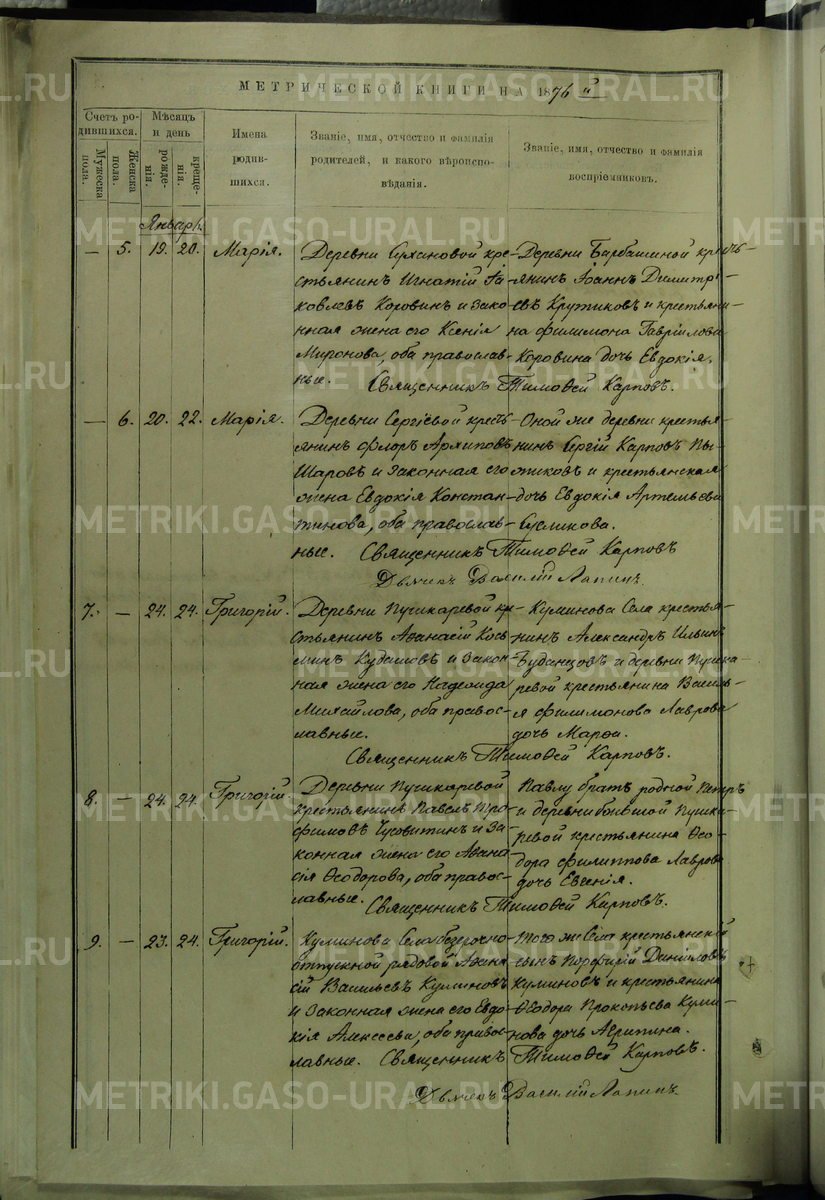 МЕТРИЧЕСКОЙ КНИГИ НА 1876 й
Счетъ ро-
дившихся.
Мужеска пола.
Женска пола.
Мѣсяцъ
и день
рожде-
нія.
креще-
нія.
Имена
родив-
шихся.
Званіе, имя, отчество и фамилія
родителей, и какого вѣроиспо-
вѣданія.
Званіе, имя, отчество и фамилія
воспріемниковъ.
Январь.
— 5. 19. 20. Марія.
Деревни кре-
стьянинъ Игнатій Іа-
ковлевъ Коровинъ и зако-
нная жена его Ксенія
Миронова, оба православ-
ные.
Деревни Барбашиной кресть-
янинъ Іоаннъ Димитрі-
евъ Крутиковъ и крестьяни-
на Филимона Гавріилова
Коровина дочь Евдокія.
Священникъ Тимофей Карповъ.
— 6. 20. 22. Марія.
Деревни Сергіевой кресть-
янинъ Флоръ Архиповъ
Шаровъ и законная его
жена Евдокія Констан-
тинова, оба православ-
ные.
Оной же деревни крестья-
нинъ Сергій Карповъ Пы-
жиковъ и крестьянская
дочь Евдокія Артемьева
Сусликова.
Священникъ Тимофей Карповъ
Дьячекъ Василій Лапинъ.
7. — 24. 24. Григорій.
Деревни Пушкаревой кре-
стьянинъ Афанасій Кось-
минъ и закон-
ная жена его Надежда
Михайлова, оба правос-
лавные.
Куминова Села крестья-
нинъ Александръ Ильинъ
Буданцовъ и деревни Пушка-
ревой крестьянина Василь-
я Филимонова Лаврова
дочь Марфа.
Священникъ Тимофей Карповъ.
8. — 24. 24. Григорій.
Деревни Пушкаревой
крестьянинъ Павелъ Тро-
фимовъ Чусовитинъ и за-
конная жена его Афана-
сія Феодорова, оба правос-
лавные.
Павлу братъ родной Петръ
и деревни бывшой Пушка-
ревой крестьянина Фео-
дора Филиппова Лаврова
дочь Евгенія.
Священникъ Тимофей Карповъ.
9. — 23. 24. Григорій.
Куминова Села безсрочно-
отпускной рядовой Афана-
сій Васильевъ Куминовъ
и законная жена его Евдо-
кія Алексеева, оба правос-
лавные.
Того же Села крестьянскій
сынъ Порфирій Даниловъ
Куминовъ и крестьянина
Феодора Прокопьева Куми-
нова дочь Агрипина.
Священникъ Тимофей Карповъ.
Дьячекъ Василій Лапинъ.
METRIKI.GASO-URAL.RU